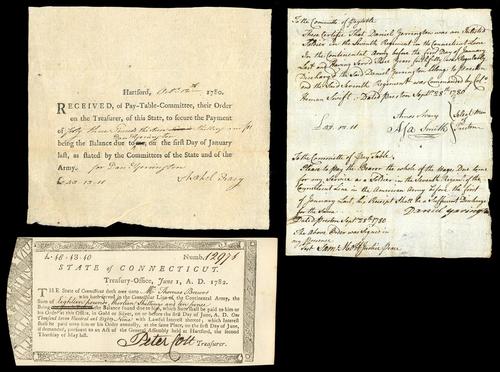 Hartford, Octr 12th 1780.
RECEIVED, of Pay-Table-Committee, their Order
on the Treasurer, of this State, to secure the Payment
of forty three Pounds thirteen
Danl Yarrington
being the Balance due to on the first Day of January
last, as stated by the Committees of the State and of the
Army. for Danl Yarrington
£43.13.11
To the Committee of Paytable
These Certifie That Daniel Yarrington was an Inlisted
Soldier in the Seventh Regiment in the Connecticut Line
In the Continental Army before the first Day of January
Last and Having Served Three Years faithfully
Discharged the Said Daniel Yarrington belongs to Preston
the Said Seventh Regiment was Commanded by Col
Heman Swift Dated Preston Septr 28th 1780
Amos Avery
Asa Smith
Select Men
of
Preston
To the Committee of Pay Table
Please to pay the Bearer the whole of the Wages Due to me
for my Service as a Soldier in the Seventh Regimt of the
Connecticut Line in the American Army before the first
of January Last his Receipt Shall be a Sufficient Discharge
for the Same
Daniel Yarrington
Dated Preston Septr 28th 1780
The Above Order was Signed in
my Presence
Test Sam Mott Justice Peace
L.18.13.10 Numb. 12976
STATE of CONNECTICUT.
Treasury-Office, June 1, A. D. 1782.
THE State of Connecticut doth owe unto Mr Thomas Brewer
who hath served in the Connecticut Line of the Continental Army, the
Sum of Eighteen pounds, thirteen Shillings and ten pence
being the Balance found due to him, which Sum shall be paid to him or
his Order at this Office, in Gold or Silver, on or before the first Day of June, A. D. One
Thousand Seven Hundred and Eighty-Nine with Lawful Interest thereof, which Interest
shall be paid unto him or his Order annually, at the same Place, on the first Day of June,
if demanded, pursuant to an Act of the General Assembly held at Hartford, the second
Thursday of May last.
Peter Colt Treasurer.